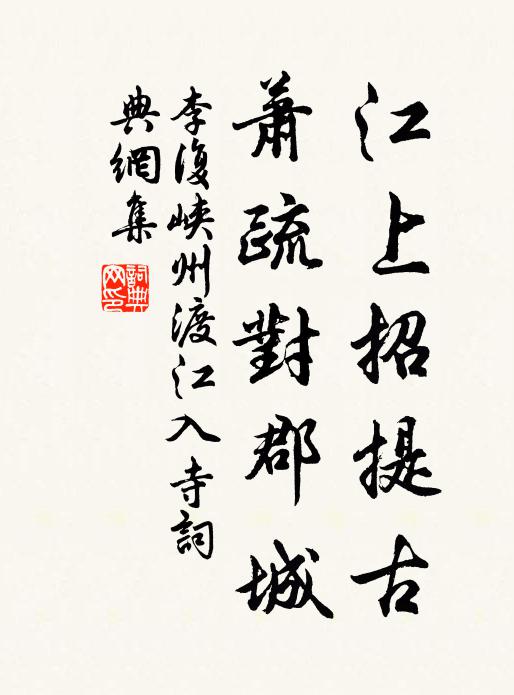 江上招提古
蕭疏對郡城
李復峽州渡江入寺詞
典網集
詞典網印